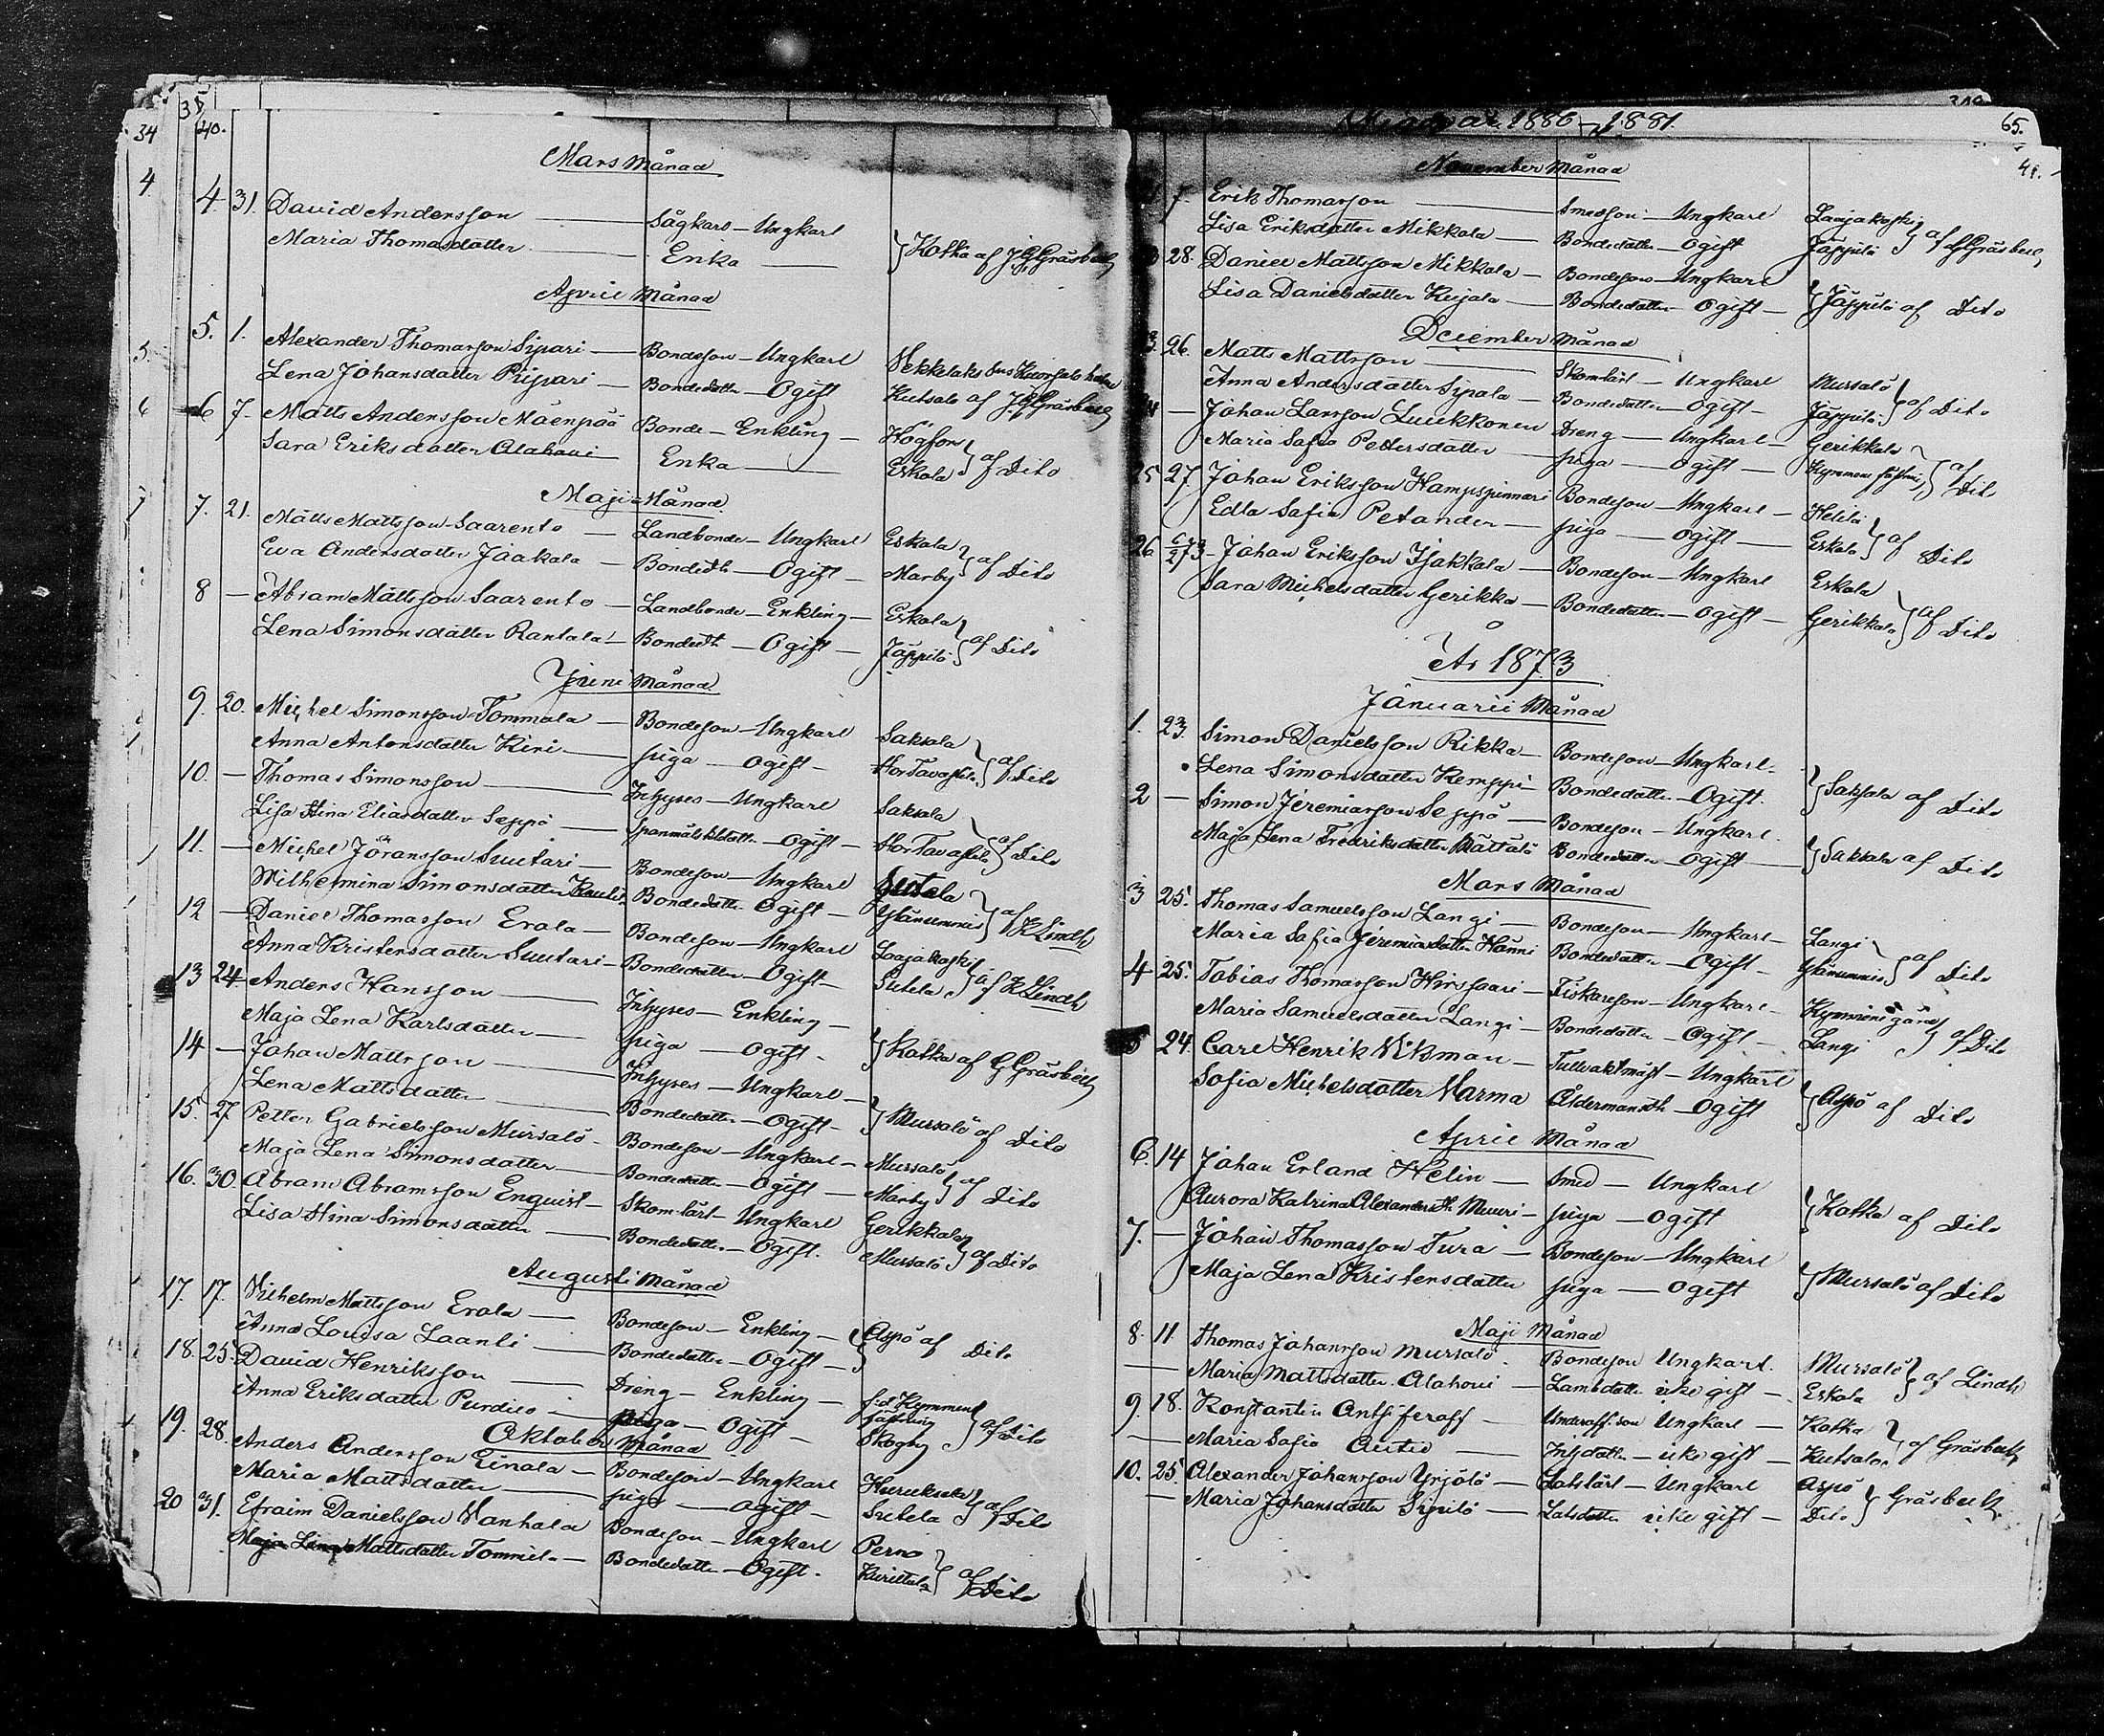 34 40.
Mars Månad
4. 4. 31. David Andersson — Sågkarl — Ungkarl
Maria Thomasdotter — Enka — } Kotka af J G Gräsbeck
April Månad
5. 5. 1. Alexander Thomasson Sipari — Bondeson — Ungkarl
Lena Johansdotter Pripari — Bondedotter — Ogift Kutsalo af J G Gräsbeck
6 6 7. Matts Andersson Mäenpää Bonde — Enkling — Högfors
Sara Eriksdotter Alahovi — Enka — Eskola } af Dito
Maji Månad
7 7. 21. Matts Mattsson Saarento — Landbonde — Ungkarl Eskola
Eva Andersdotter Jaakala — Bondedtr — Ogift — Marby } af Dito
8 — Abram Mattsson Saarento — Landbonde — Enkling — Eskola
Lena Simonsdotter Rantala — Bondedtr — Ogift — Jäppilä } af Dito
Juni Månad
9. 20. Michel Simonsson Tommola — Bondeson — Ungkarl Saksala
Anna Antonsdotter Kiri — piga — Ogift — } af Dito
10. — Thomas Simonsson — Inhyses — Ungkarl Saksala
Lisa Stina Eliasdotter Seppä — Ogift — } af Dito
11. — Michel Göransson Suutari — Bondeson — Ungkarl Sutela
Wilhelmina Simonsdotter Bondedotter Ogift — Ylänummis } af K Lindh
12 — Daniel Thomasson Erola — Bondeson — Ungkarl Laajakoski
Anna Kristersdotter Suutari — Bondedotter — Ogift — Sutela } af K Lindh
13 24 Anders Hansson — Inhyses — Enkling —
Maja Lena Karlsdotter — piga — Ogift — } Kotka af G Gräsbeck
14 — Johan Mattsson — Inhyses — Ungkarl —
Lena Mattsdotter — Bondedotter — Ogift — } Mussalö af Dito
15. 27 Petter Gabrielsson Mussalö — Bondeson — Ungkarl — Mussalö
Maja Lena Simonsdotter — Bondedotter — Ogift — Marby } af Dito
16. 30. Abram Abramsson Enqvist — Skom. lärl — Ungkarl Gerikkala
Lisa Stina Simonsdotter — Bondedotter — Ogift. Mussalö } af Dito
Augusti Månad
17. 17. Vilhelm Mattsson Erola — Bondeson — Enkling —
Anna Lovisa Laanti — Bondedotter — Ogift — } Aspö af Dito
18. 25. David Henriksson — Dreng — Enkling —
Anna Eriksdotter — piga — Ogift — Skogby } af Dito
Oktober Månad
19. 28. Anders Andersson Einola — Bondeson — Ungkarl Huruksela
Maria Mattsdotter — piga — Ogift — Sutela } af Dito
20 31. Efraim Danielsson Vanhala Bondeson — Ungkarl Perno
Maja Lena Mattsdotter Tommila — Bondedotter — Ogift. Kurittula } af Dito
1880 — 1881. 65.
41.
November Månad
7. Erik Thomasson — Smedson — Ungkarl Laajakoski
Lisa Eriksdotter Mikkola — Bondedotter — Ogift Jäppilä } af G Gräsbeck
28. Daniel Mattsson Mikkola — Bondeson — Ungkarl
Lisa Danielsdotter Kujala — Bondedotter — Ogift — } Jäppilä af Dito
December Månad
26. Matts Mattsson — Skom. lärl — Ungkarl Mussalö
Anna Andersdotter Sipala — Bondedotter — Ogift — Jäppilä } af Dito
— Johan Larsson Luukkonen Dreng — Ungkarl — Gerikkala
Maria Sofia Pettersdotter — piga — Ogift — } af Dito
25 27. Johan Eriksson Hampspinnari Bondeson — Ungkarl — Heilä
Edla Sofia Petander — piga — Ogift — Eskola } af Dito
26 Johan Eriksson Jaakkola — Bondeson — Ungkarl Eskola
Sara Michelsdotter Gerikka — Bondedotter — Ogift — Gerikkala } af Dito
År 1873
Januarii Månad
1. 23. Simon Danielsson Rikka — Bondeson — Ungkarl —
Lena Simonsdotter Kemppi — Bondedotter — Ogift. } Saksala af Dito
2 — Simon Jeremiasson Seppä — Bondeson — Ungkarl.
Maja Lena Fredriksdotter Mättälä Bondedotter — Ogift — } Saksala af Dito
Mars Månad
3 25. Thomas Samuelsson Langi — Bondeson — Ungkarl — Langi
Maria Sofia Jeremiasdotter Hänni Bondedotter — Ogift — Ylänummis } af Dito
4 25. Tobias Thomasson Hirssaari — Fiskareson — Ungkarl — Kymmenegård
Maria Samuelsdotter Langi — Bondedotter — Ogift — Langi } af Dito
5 24. Carl Henrik Vikman — Tullvaktmäst — Ungkarl
Sofia Michelsdotter Marma Åldermansdtr — Ogift } Aspö af Dito
April Månad
6. 14 Johan Erland Helin — Smed — Ungkarl
Aurora Katrina Alexandersdtr Muuri — piga — Ogift } Kotka af Dito
7. — Johan Thomasson Tura — Bondeson — Ungkarl
Maja Lena Kristersdotter piga — Ogift } Mussalö af Dito
Maji Månad
8. 11. Thomas Johansson Mussalo. Bondeson Ungkarl. Mussalö
— Maria Mattsdotter Alahovi — Lansdotter icke gift — Eskola } af Lindh
9. 18. Konstantin Antsiferoff — Underoff. son Ungkarl — Kotka
— Maria Sofia Autio — Inhsdotter — icke gift — Kutsalo } af Gräsbeck
10. 25. Alexander Johansson Yrjölä — Lotslärl — Ungkarl Aspö
— Maria Johansdotter Sipilä — Lotsdotter icke gift — Dito } Gräsbeck